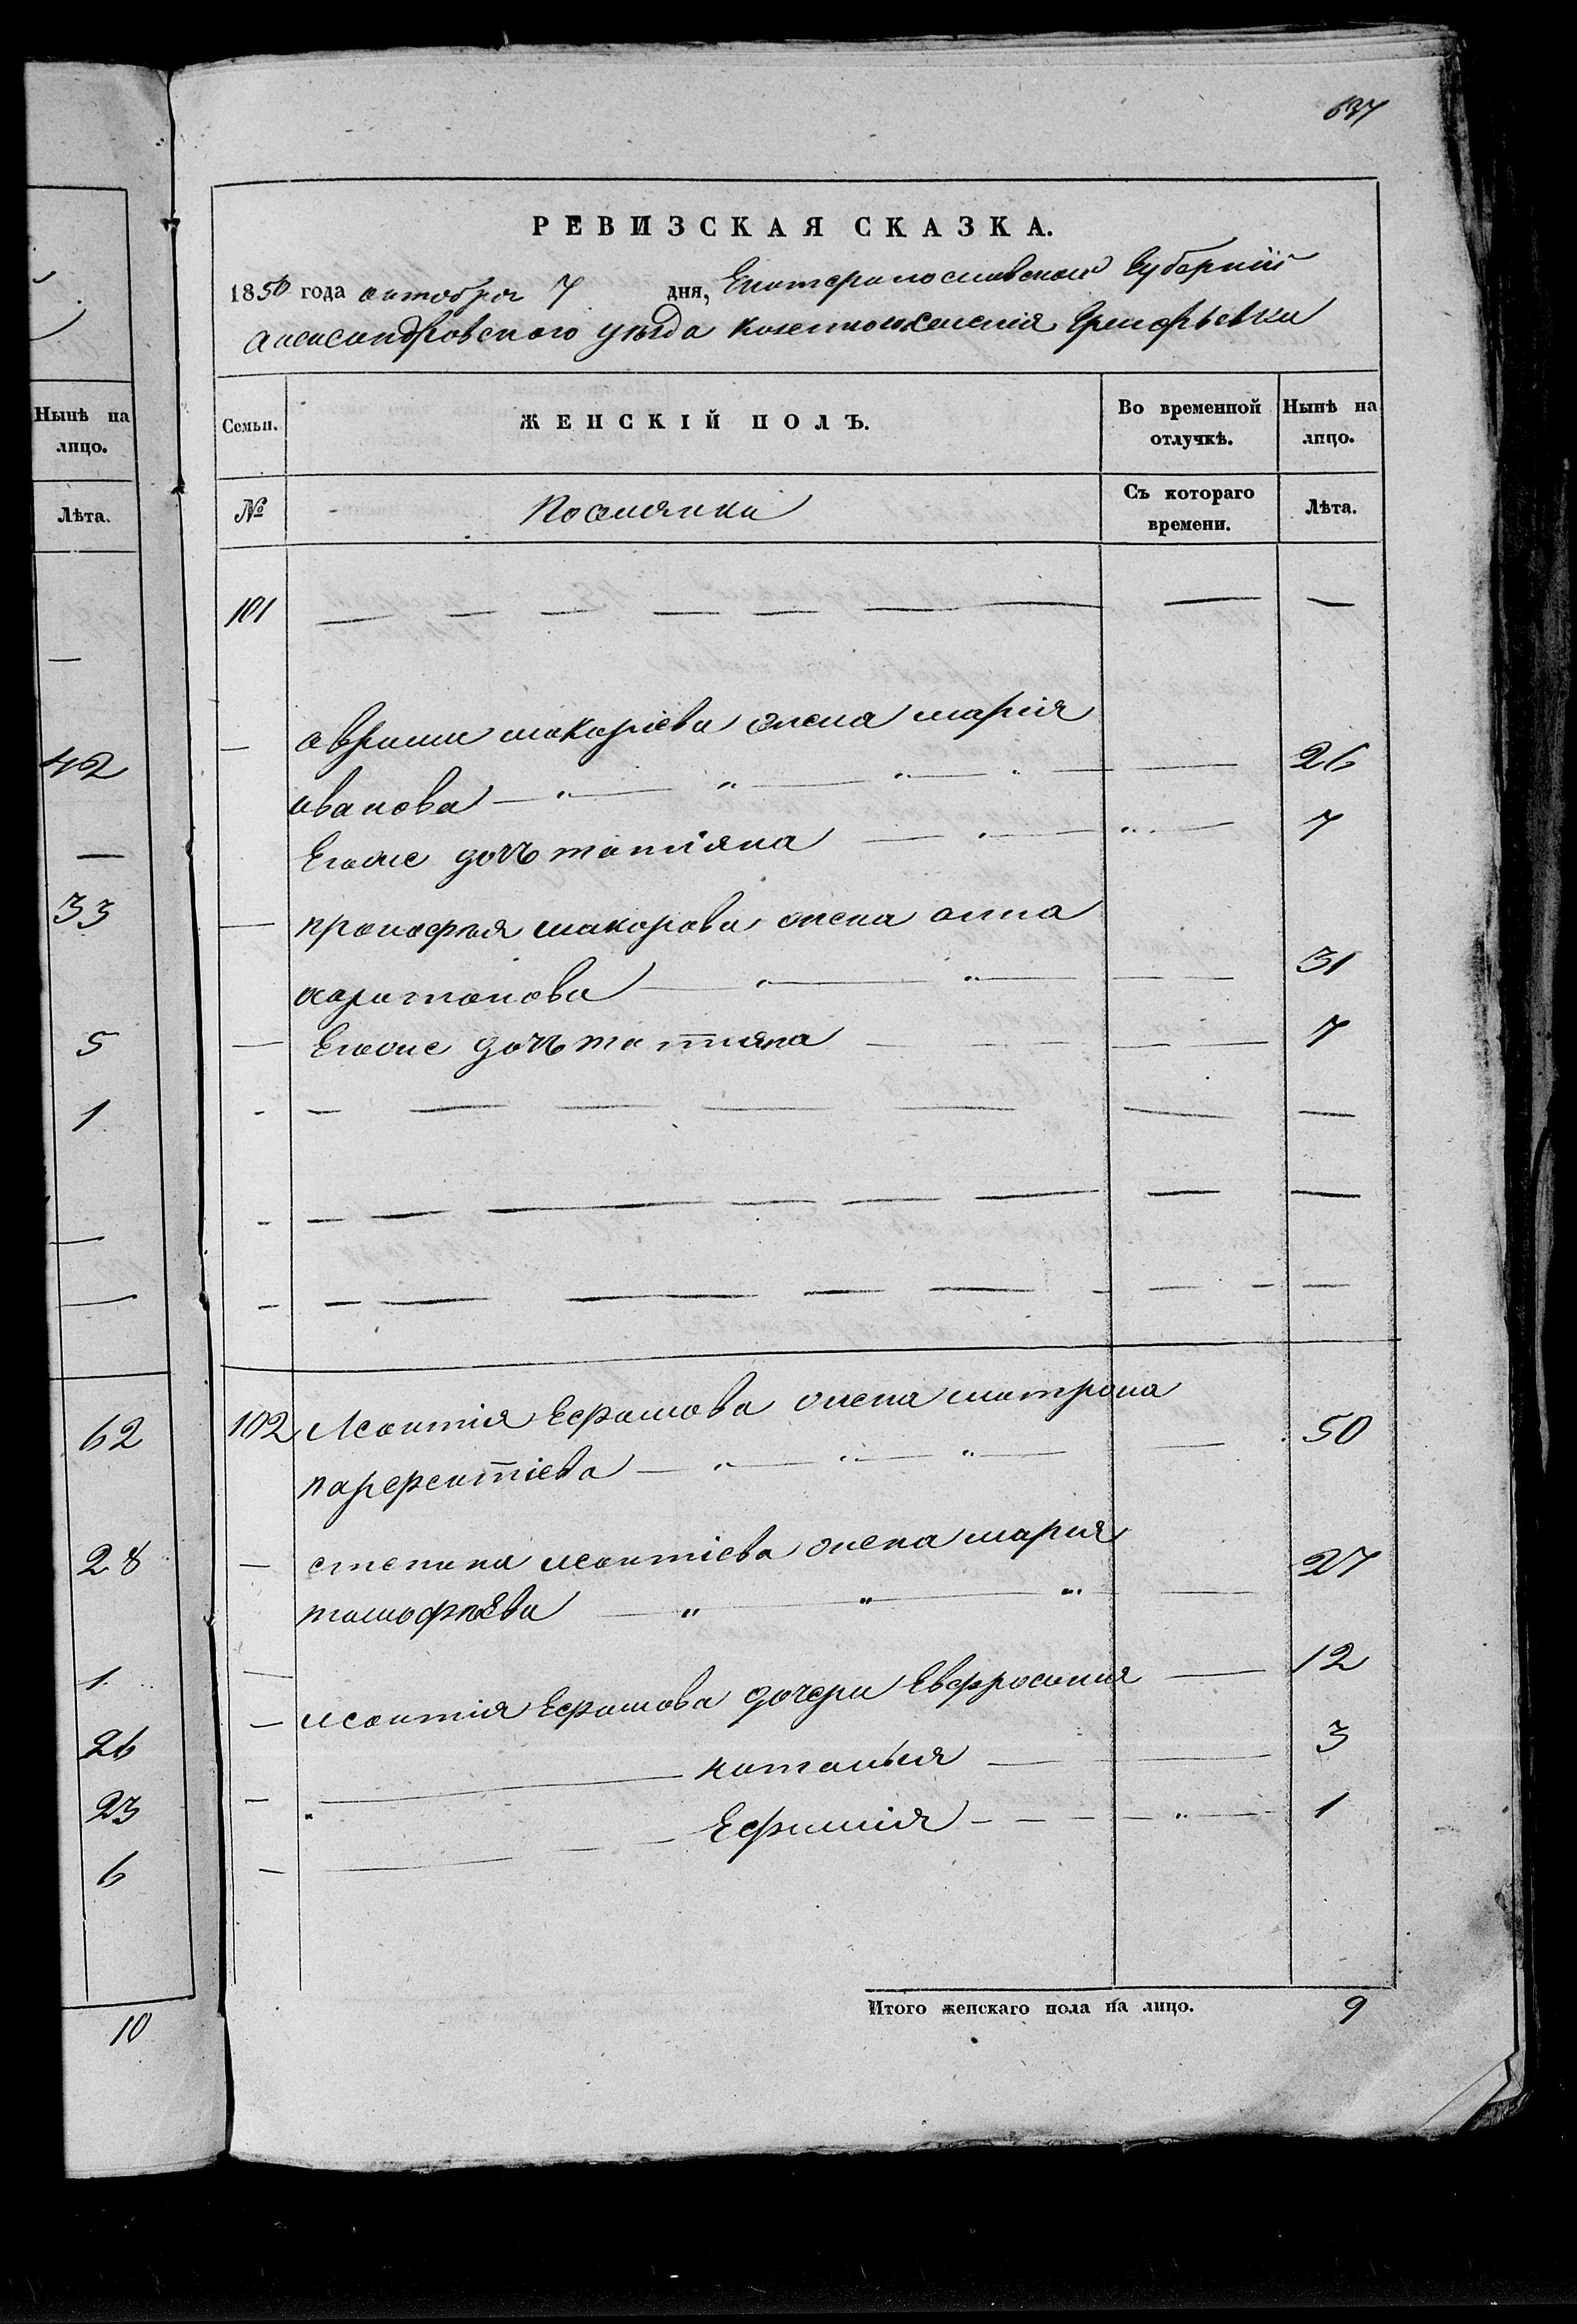 637
РЕВИЗСКАЯ СКАЗКА.
1850 года октября 7 дня, Екатеринославской Губернии
Александровского уѣзда казеннаго селенія Григорьевки
Нынѣ на лицо.
Лѣта.
—
42
—
33
5
1
—
—
62
28
1
26
23
6
10
Семьи. ЖЕНСКІЙ ПОЛЪ. Во временной отлучкѣ. Нынѣ на лицо.
№ Поселянки Съ котораго времени. Лѣта.
101 — — — — — — — —
— авраама макаріева жена марія
иванова — " — " — " — " — — 26
Егоже дочь татіяна — " — " — 7
— прокофія макарова жена анна
харитонова — " — " — — 31
— Егоже дочь татіяна — — — 7
- - — — — — — — —
- — — — — — — — —
- — — — — — — - — - —
102 Леонтія Ефимова жена матрона
парфентіева — " — " — " — — 50
— степана леонтіева жена марія
тимофѣева — " — " — " — 27
— леонтія Ефимова дочери Евфросинія — 12
— " — наталья — — 3
— — — Ефимія - — - — " — 1
Итого женскаго пола на лицо. 9